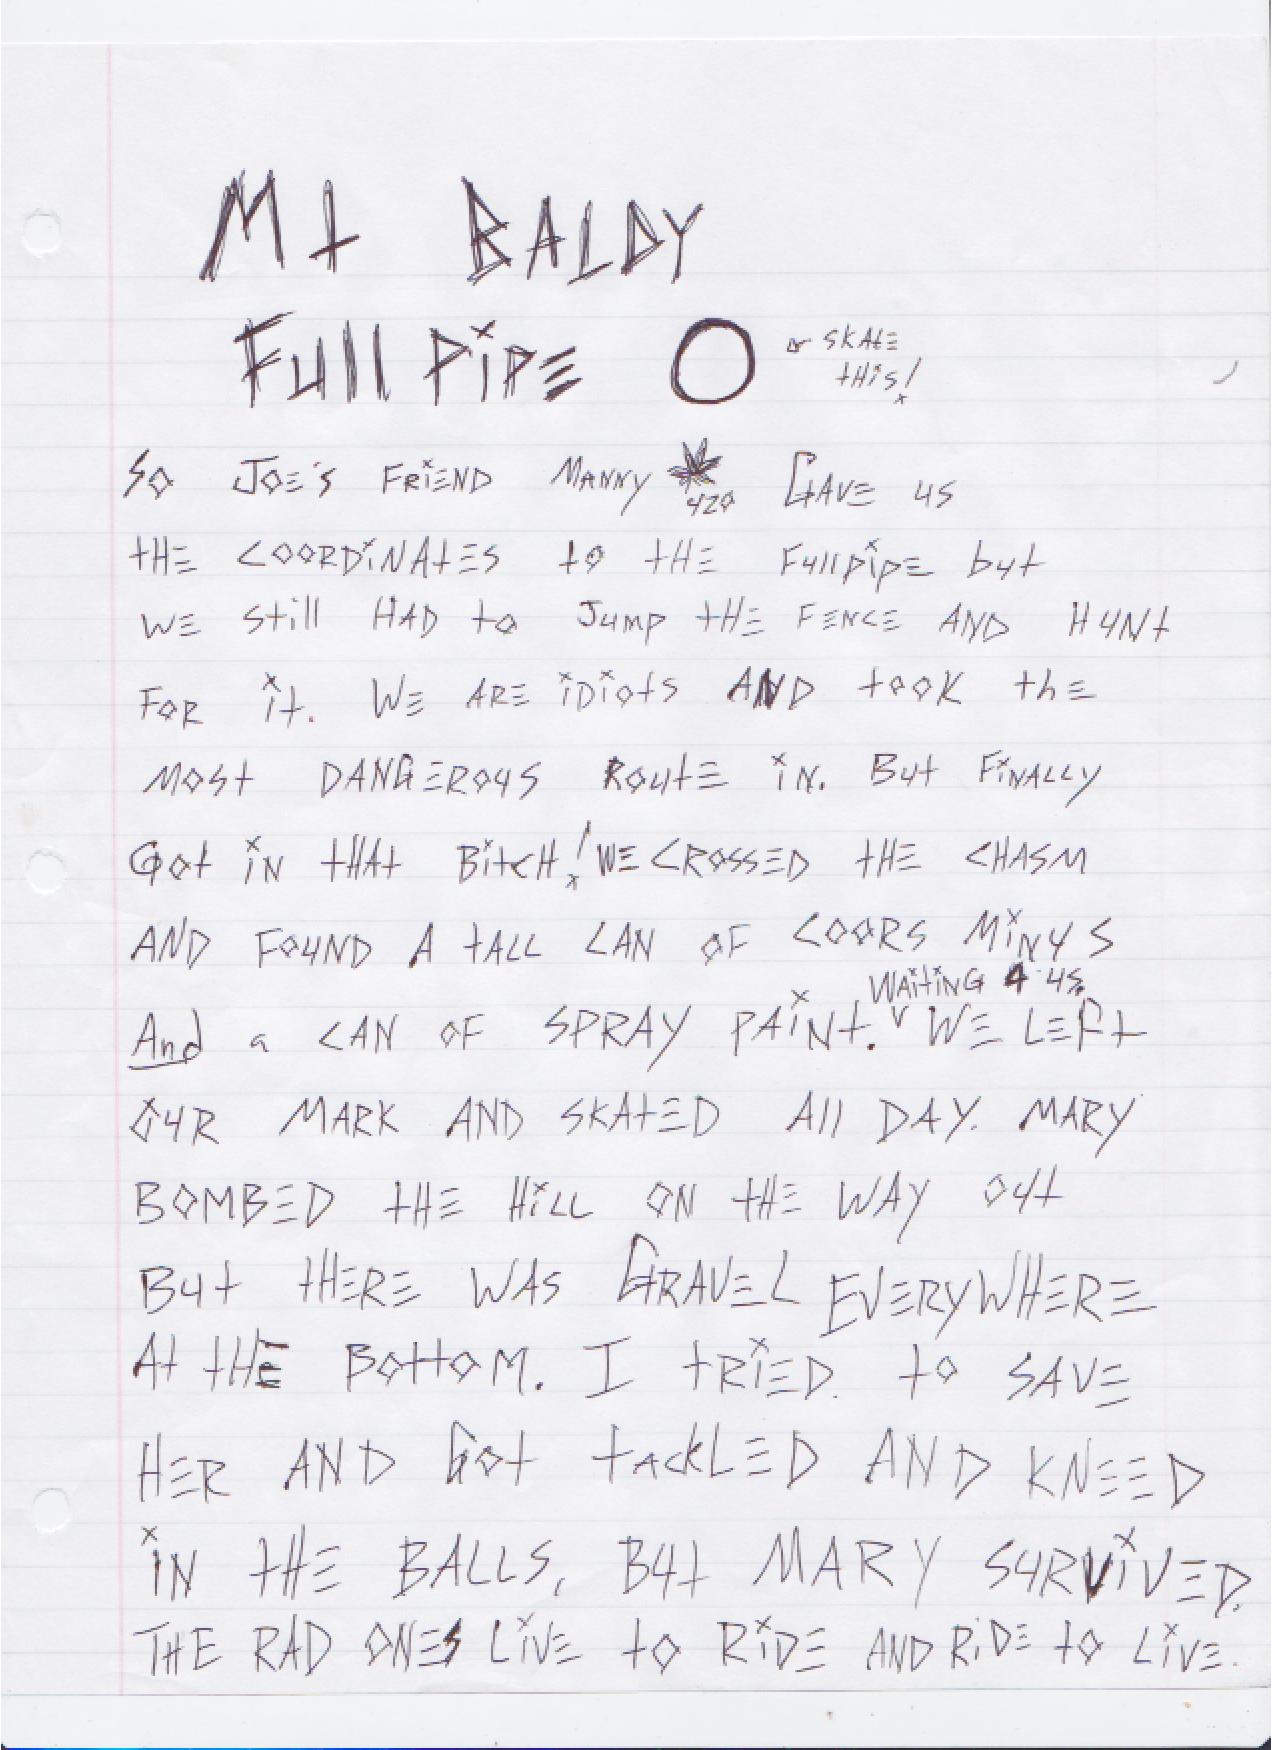 Mt BALDY
Full Pipe O SKAtE
tHis!
So JOE'S FRiEND MANNY 420 GAVE us
tHE COORDiNAtES to tHE Fullpipe but
WE still HAD to Jump tHE FENCE AND HuNt
FOR it. WE ARE iDiots AND tooK thE
MOSt DANGEROuS RoutE iN. But FiNALLY
Got iN tHAt BitcH! WE CROSSED tHE CHASM
AND FOuND A tALL CAN OF COORS MiNuS
WAitiNG 4 us
And a CAN OF SPRAY PAiNt. WE LEFt
OuR MARK AND SKAtED All DAY. MARY
BOMBED tHE HiLL ON tHE WAY Out
But tHERE WAS GRAVEL EVERYWHERE
At tHE BOttOM. I tRiED to SAVE
HER AND Got tackLED AND KNEED
iN tHE BALLS, But MARY SuRViVED.
THE RAD ONES LiVE to RiDE AND RiDE to LiVE.